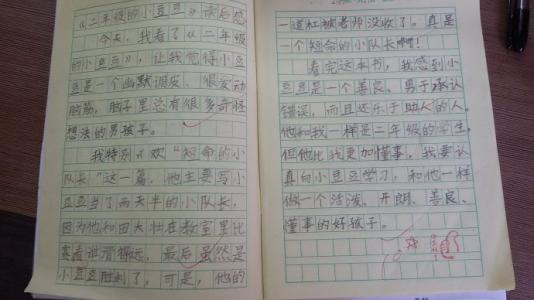 《二年级的小豆豆》读后感
今天，我看了《二年级
的小豆豆》，让我觉得小豆
豆是一个幽默调皮、很爱动
脑筋，脑子里总有很多奇怪
想法的男孩子。
我特别喜欢“短命的小
队长”这一篇，他主要写小
豆豆当了两天半的小队长，
因为他和田大壮在教室里比
赛看谁滑得远，最后虽然是
小豆豆胜利了，可是，他的
一道杠被老师没收了。真是
一个短命的小队长啊！
看完这本书，我感到小
豆豆是一个善良、勇于承认
错误，而且还乐于助人的人。
他和我一样是二年级的学生，
但他比我更加懂事，我要认
真向小豆豆学习，和他一样
做一个活泼、开朗、善良、
懂事的好孩子。